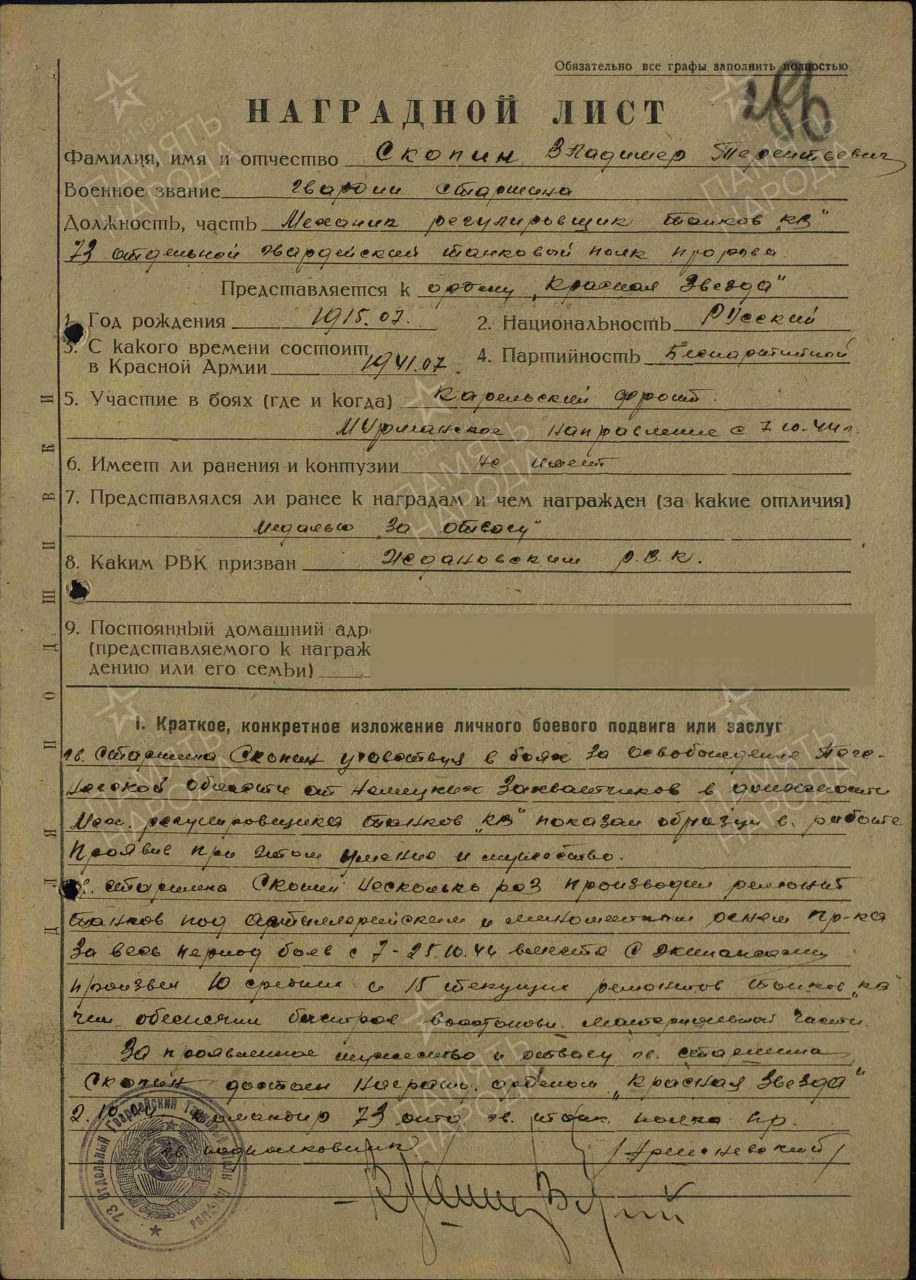 Обязательно все графы заполнить полностью
НАГРАДНОЙ ЛИСТ
Фамилия, имя и отчество Скопин Владимир Терентьевич
Военное звание Гвардии старшина
Должность, часть Механик регулировщик танков „КВ"
73 отдельной гвардейский танковый полк прорыва
Представляется к ордену „Красная Звезда"
1. Год рождения 1915.07. 2. Национальность Русский
3. С какого времени состоит
в Красной Армии 1941.07 4. Партийность Беспартийной
5. Участие в боях (где и когда) Карельский фронт.
Мурманское направление с 7.10.44 г.
6. Имеет ли ранения и контузии не имеет
7. Представлялся ли ранее к наградам и чем награжден (за какие отличия)
Медалью „За отвагу"
8. Каким РВК призван Ждановским Р.В.К.
9. Постоянный домашний адр
(представляемого к награж
дению или его семьи)
І. Краткое, конкретное изложение личного боевого подвига или заслуг
гв. старшина Скопин участвуя в боях за освобождение Пече-
нгской области от немецких захватчиков в должности
Мех. регулировщика танков „КВ" показал образцы в работе
проявив при этом умение и мужество.
гв. старшина Скопин несколько раз производил ремонт
танков под артиллерийским и минометным огнем пр-ка
За весь период боев с 7-25.10.44 вместе с экипажами
произвел 10 средних и 15 текущих ремонтов танков „КВ"
чем обеспечил быстрое восстанови. материальной части.
За проявленное мужество и отвагу гв. старшина
Скопин достоин награжд. орденом „Красная Звезда"
Командир 73 отд. гв. танк. полка пр.
гв. подполковник
73 Отдельный Гвардейский Танковый Полк Прорыва
ДЛЯ ПОДШИВКИ
ПАМЯТЬ НАРОДА